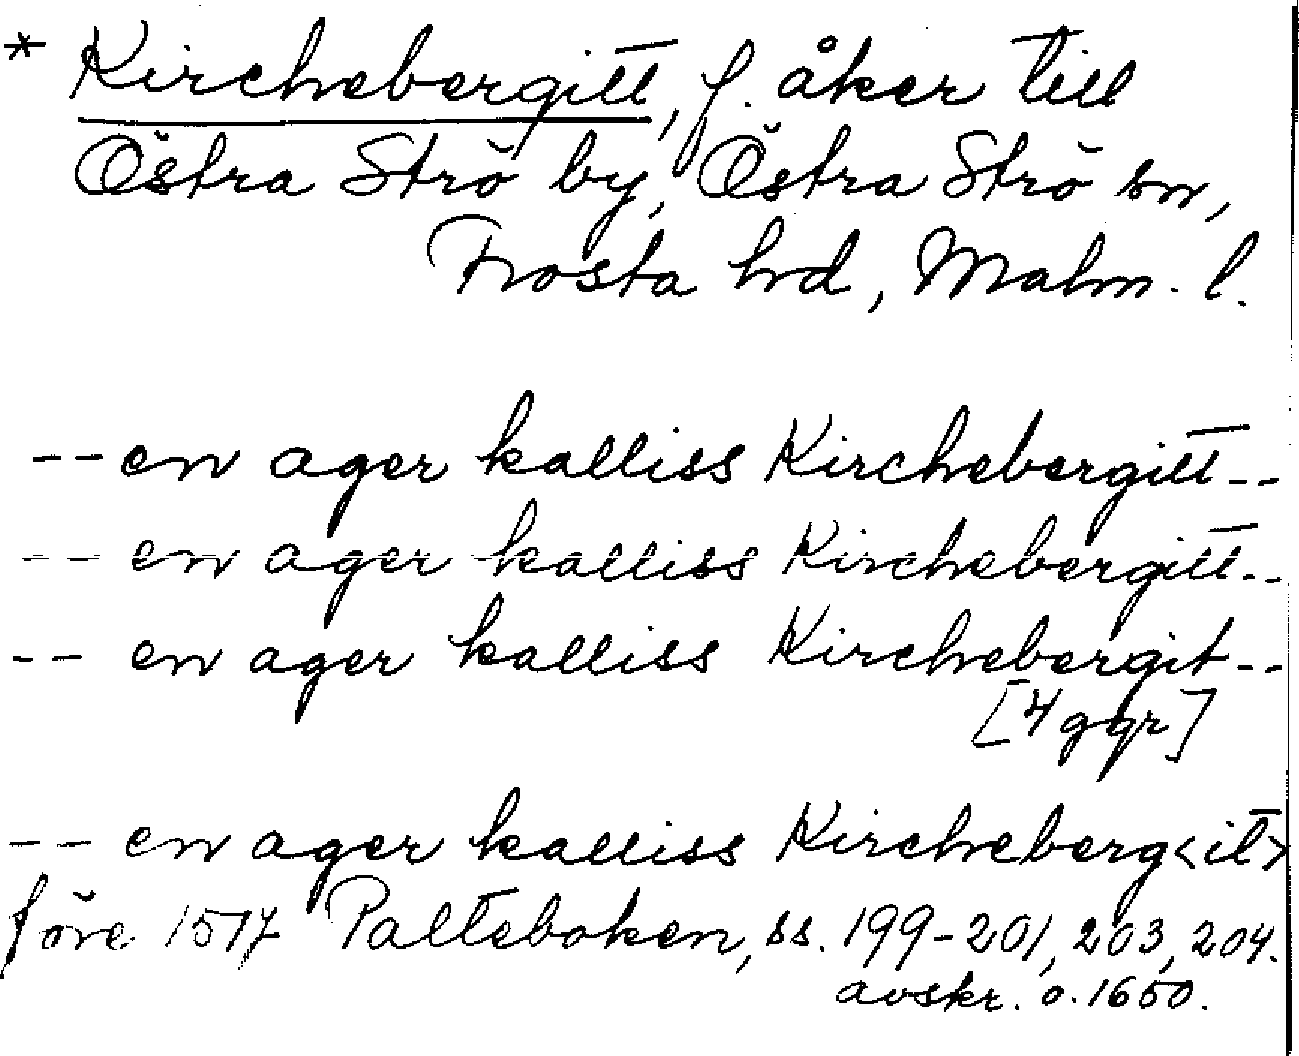 * Kirchebergitt, f. åker till
Östra Strö by, Östra Strö sn,
Frosta hd, Malm. l.
-- en ager kalliss Kirchebergitt --
-- en ager kalliss Kirchebergitt --
-- en ager kalliss Kirchebergit --
[4 ggr]
-- en ager kalliss Kircheberg<it>
före 1517 Palteboken, ss. 199-201, 203, 204.
avskr. o. 1650.